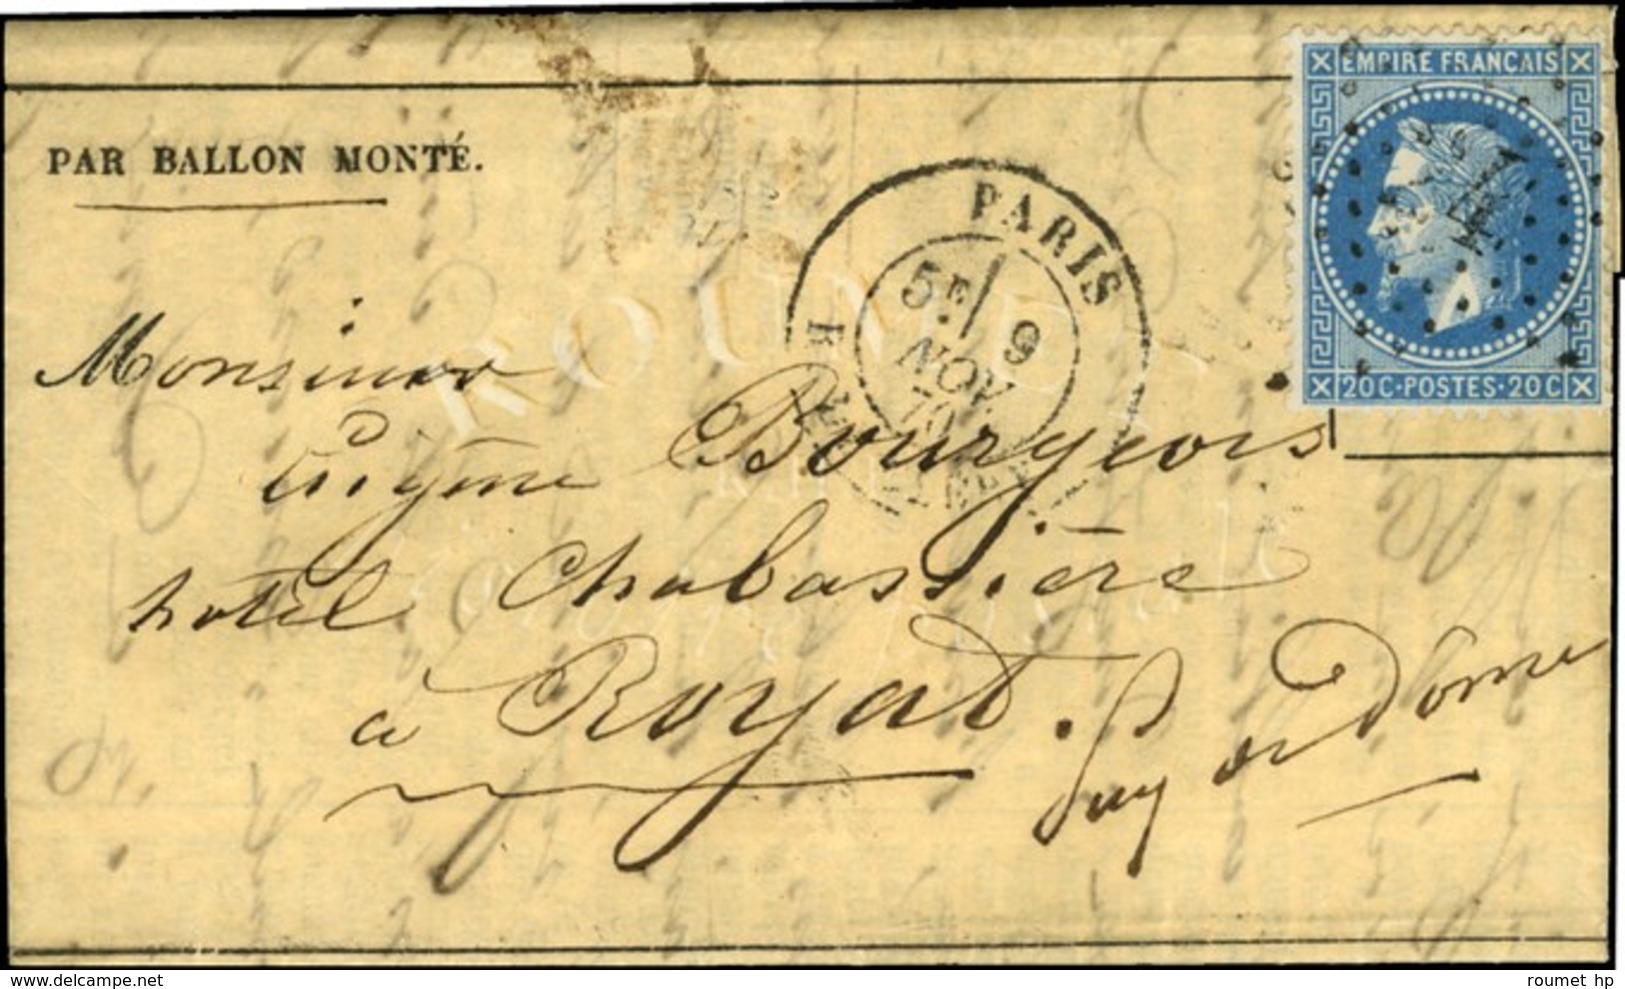 EMPIRE FRANÇAIS
PAR BALLON MONTÉ.
PARIS
5E 9
NOV
70
20C·POSTES·20C
Monsieur
Eugène Bourgeois
hotel Chabassière
à Royat. Puy de Dôme
ROUMET
roumet hp